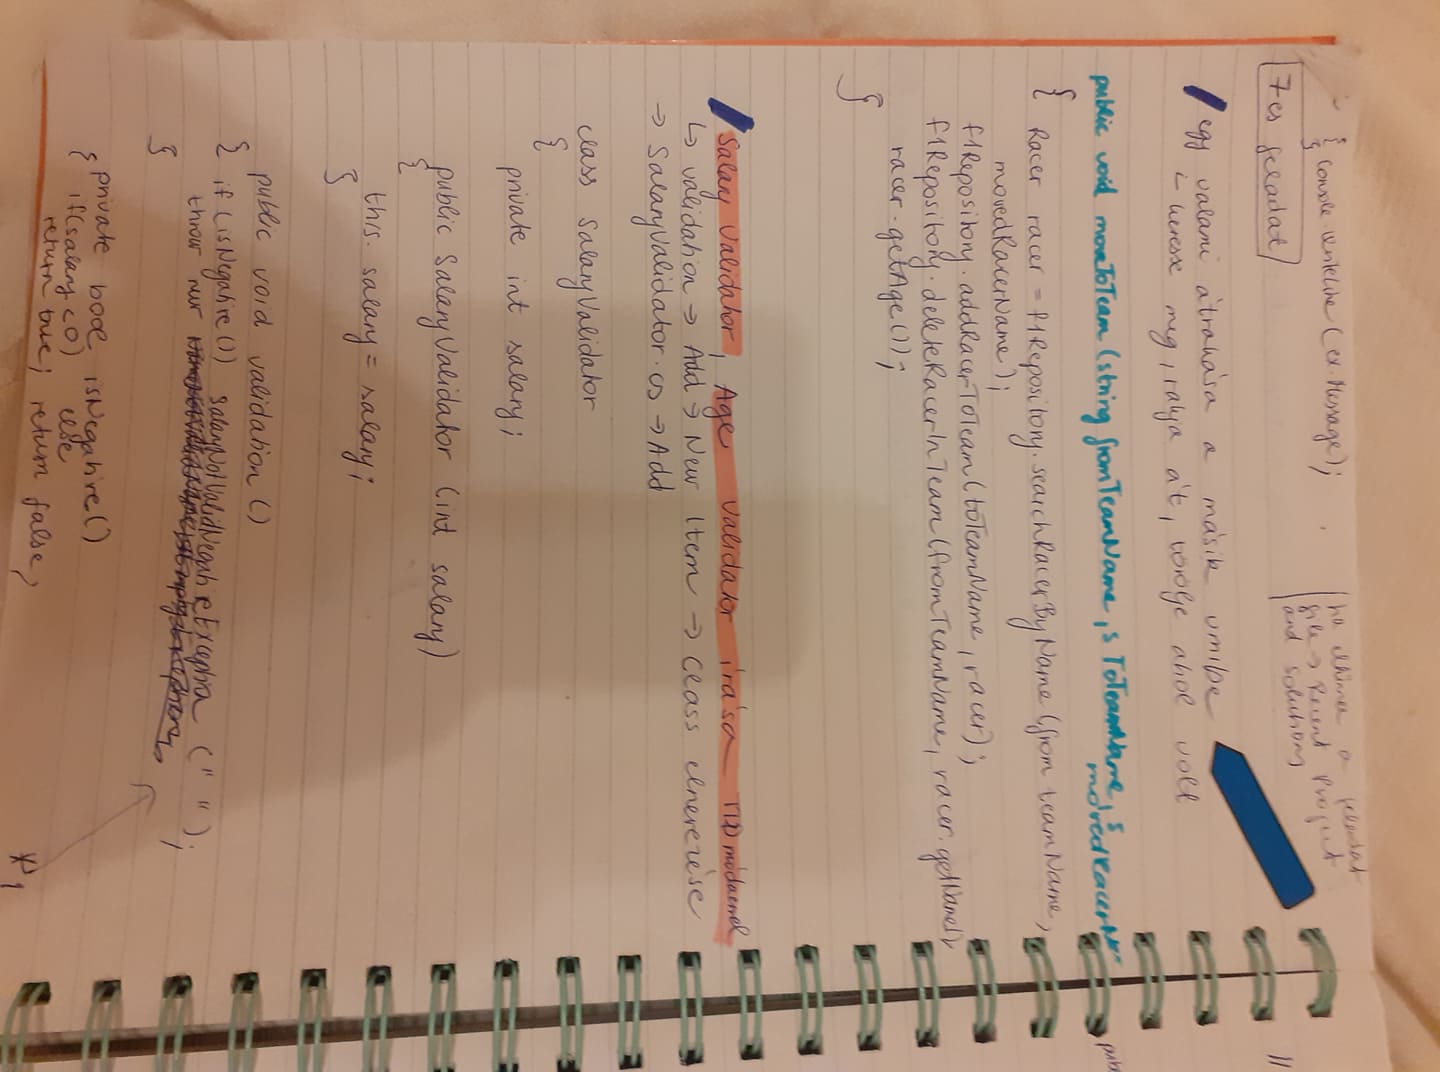 { Console.WriteLine(ex.Message);
}
ha eltűnne a feladat
file → Recent Project
and solutions
7es feladat
egy valami átrakása a másik vmibe
← keresse meg, rakja át, törölje ahol volt
public void moveToTeam (string fromTeamName, s ToTeamName, s movedRacerN
{ Racer racer = f1Repository.searchRacerByName (from teamName,
movedRacerName);
f1Repository.addRacerToTeam(toTeamName, racer);
f1Repository.deleteRacerInTeam(fromTeamName, racer.getName(),
racer.getAge());
}
Salary validator, Age validator írása TDD módszerrel
↳ validation → Add → New Item → Class elnevezése
→ SalaryValidator.cs → Add
class SalaryValidator
{
private int salary;
public SalaryValidator (int salary)
{
this.salary = salary;
}
public void validation ()
{ if(isNegative()) SalaryNotValidNegativeException (" ");
throw new
}
private bool isNegative()
{ if(salary<0) else
return true; return false;
*1
11
pub